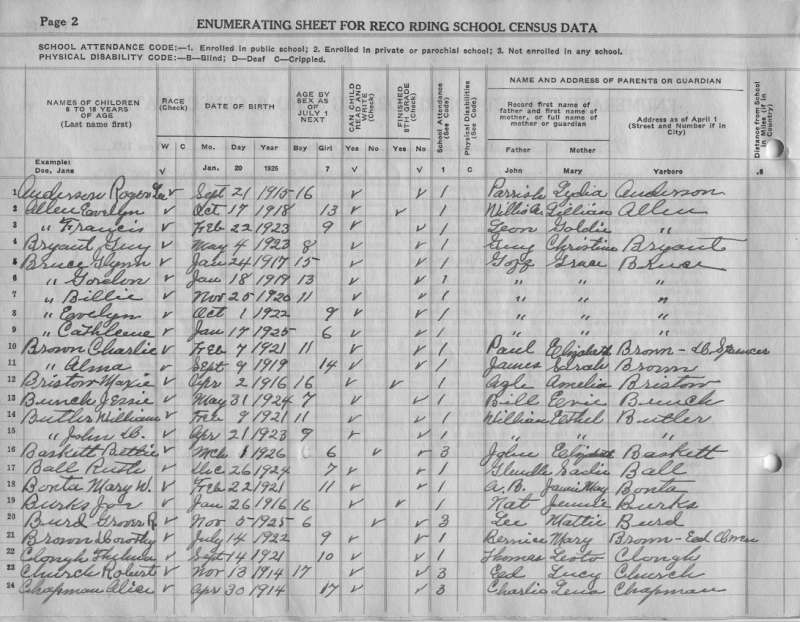 Page 2
ENUMERATING SHEET FOR RECO RDING SCHOOL CENSUS DATA
SCHOOL ATTENDANCE CODE:—1. Enrolled in public school; 2. Enrolled in private or parochial school; 3. Not enrolled in any school.
PHYSICAL DISABILITY CODE:—B—Blind; D—Deaf C—Crippled.
NAMES OF CHILDREN 6 TO 18 YEARS OF AGE (Last name first)
RACE (Check)
DATE OF BIRTH
AGE BY SEX AS OF JULY 1 NEXT
CAN CHILD READ AND WRITE (Check)
FINISHED 8TH GRADE (Check)
School Attendance (See Code)
Physical Disabilities (See Code)
NAME AND ADDRESS OF PARENTS OR GUARDIAN
Record first name of father and first name of mother, or full name of mother or guardian
Address as of April 1 (Street and Number if in City)
Distance from School in Miles (if in Country)
W C Mo. Day Year Boy Girl Yes No Yes No Father Mother
Example: Doe, Jane √ Jan. 20 1925 7 √ √ 1 C John Mary Yarboro .8
1 Anderson Roger Lee v Sept 21 1915 16 v v 1 Parrish Lydia Anderson
2 Allen Evelyn v Oct 17 1918 13 v v 1 Willis A. Lillian Allen
3 " Francis v Feb 22 1923 9 v v 1 Leon Goldie "
4 Bryant Guy v May 4 1923 8 v v 1 Guy Christine Bryant
5 Bruce Glynn v Jan 24 1917 15 v v 1 Goff Grace Bruce
6 " Gordon v Jan 18 1919 13 v v 1 " " "
7 " Billie v Nov 25 1920 11 v v 1 " " "
8 " Evelyn v Oct 1 1922 9 v v 1 " " "
9 " Cathleene v Jan 17 1925 6 v v 1 " " "
10 Brown Charlie v Feb 7 1921 11 v v 1 Paul Elizabeth Brown - Spencer
11 " Alma v Sept 9 1919 14 v v 1 James Sarah Brown
12 Bristow Maxie v Apr 2 1916 16 v v 1 Agle Amelia Bristow
13 Bunch Jessie v May 31 1924 7 v v 1 Bill Evie Bunch
14 Butler William v Feb 9 1921 11 v v 1 William Ethel Butler
15 " John v Apr 21 1923 9 v v 1 " " "
16 Baskett Bettie v Mch 1 1926 6 v v 3 John Elizabeth Baskett
17 Ball Ruth v Dec 26 1924 7 v v 1 Sadie Ball
18 Bonta Mary W. v Feb 22 1921 11 v v 1 A.B. Janie May Bonta
19 Burks v Jan 26 1916 16 v v 1 Nat Jennie Burks
20 Burd Grover R. v Nov 5 1925 6 v v 3 Lee Mattie Burd
21 Brown Dorothy v July 14 1922 9 v v 1 Bernice Mary Brown - Ed Owen
22 Clough Thelma v Sept 14 1921 10 v v 1 Thomas Clough
23 Church Robert v Nov 13 1914 17 v v 3 Ed Lucy Church
24 Chapman Alice v Apr 30 1914 17 v v 3 Charlie Lena Chapman